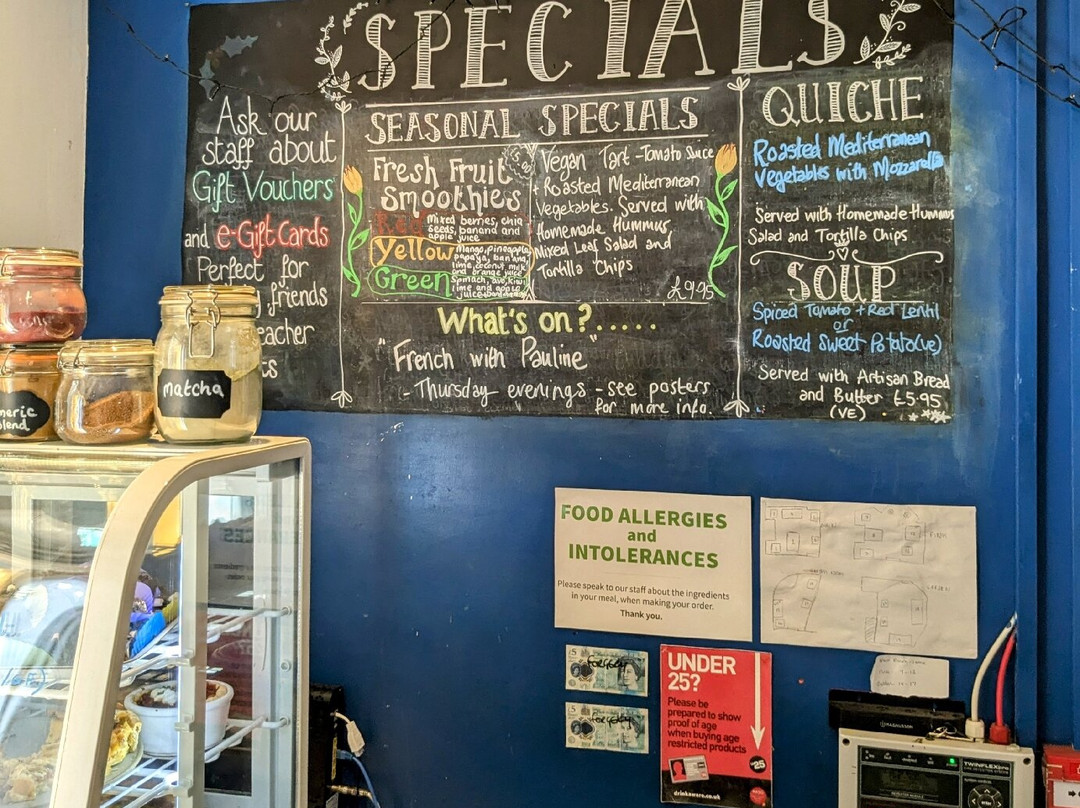 SPECIALS
Ask our
staff about
Gift Vouchers
and e-Gift Cards
Perfect for
friends
eacher
SEASONAL SPECIALS
Fresh Fruit
Smoothies
Red mixed berries, chia
seeds, banana and
apple juice
Yellow mango, pineapple,
papaya, banana,
lime, coconut milk
and orange juice
Green spinach, kiwi
lime and apple
juice
Vegan Tart - Tomato Sauce
+ Roasted Mediterranean
Vegetables. Served with
Homemade Hummus,
Mixed Leaf Salad and
Tortilla Chips
£9.95
What's on?.....
"French with Pauline"
- Thursday evenings - see posters
for more info.
QUICHE
Roasted Mediterranean
Vegetables with Mozzarella
Served with Homemade Hummus
Salad and Tortilla Chips
SOUP
Spiced Tomato + Red Lentil
or
Roasted Sweet Potato (ve)
Served with Artisan Bread
and Butter £5.95
(VE)
meric
blend
Matcha
FOOD ALLERGIES
and
INTOLERANCES
Please speak to our staff about the ingredients
in your meal, when making your order.
Thank you.
UNDER
25?
Please be
prepared to show
proof of age
when buying age
restricted products
25
drinkaware.co.uk
TWINFLEX